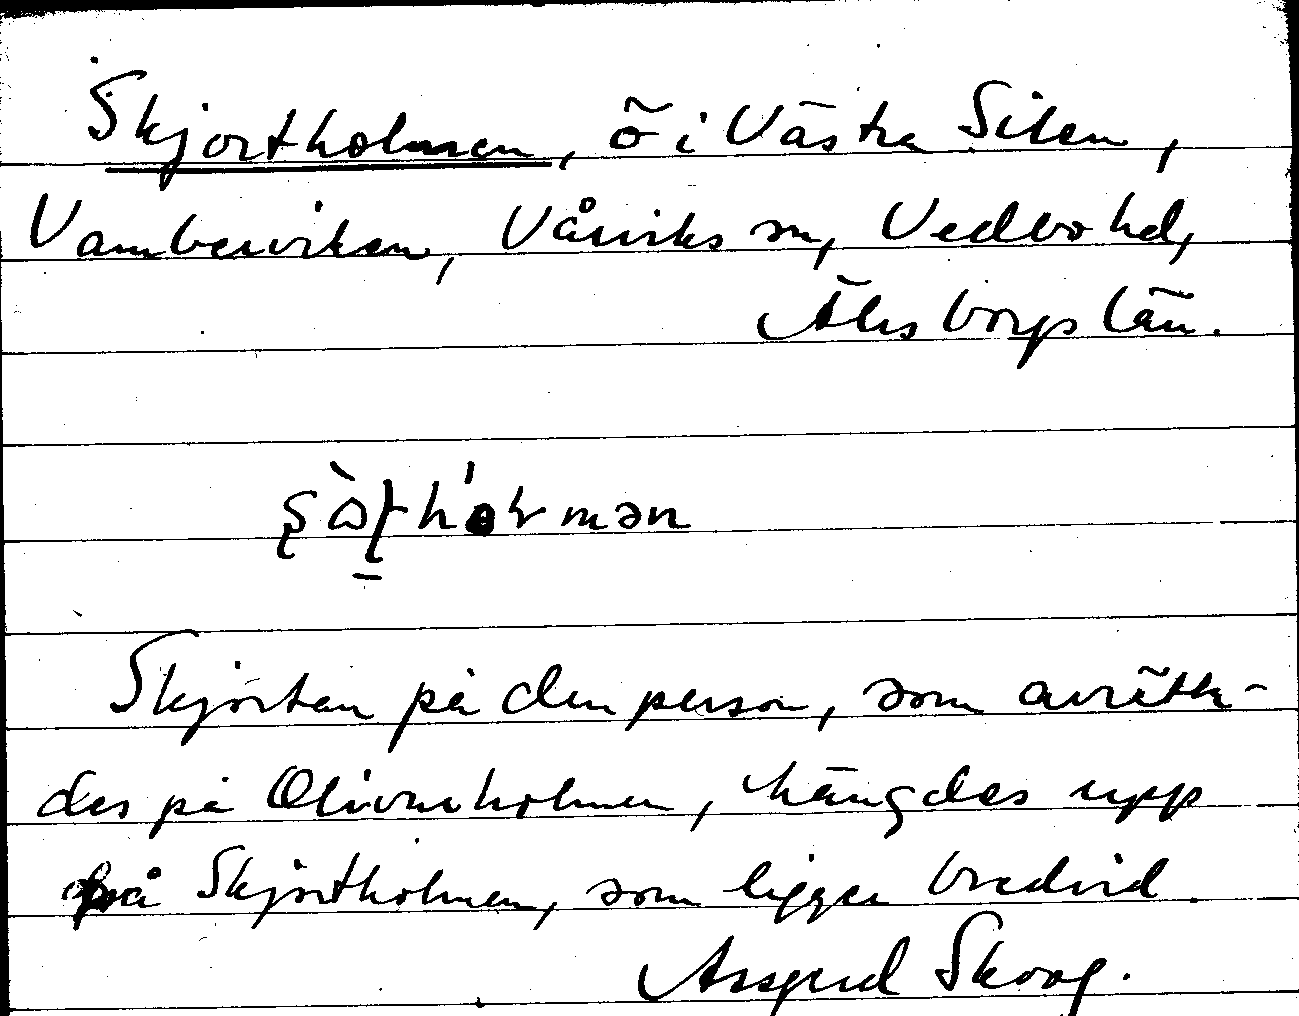 Skjortholmen, ö i Västra Silen,
Vamberviken, Vårviks sn, Vedbo hd,
Älvsborgs län.
Skjortan på den person, som avrätta-
des på Olivusholmen, hängdes upp
på Skjortholmen, som ligger bredvid.
Assgerd Skoog.